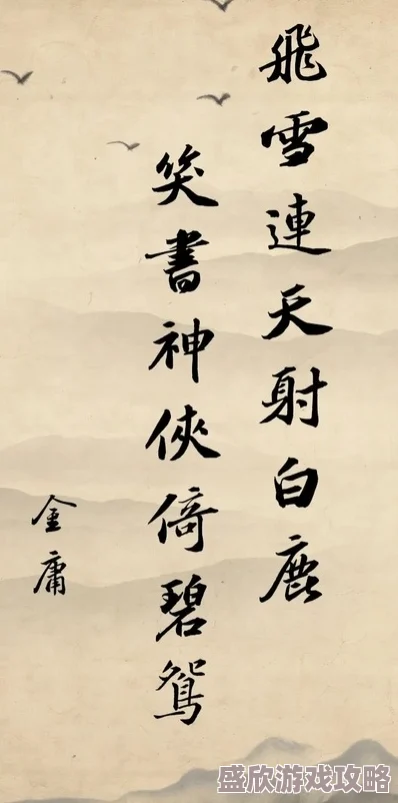 飛雪連天射白鹿
笑書神俠倚碧鴛
金庸
盛欣游戏攻略